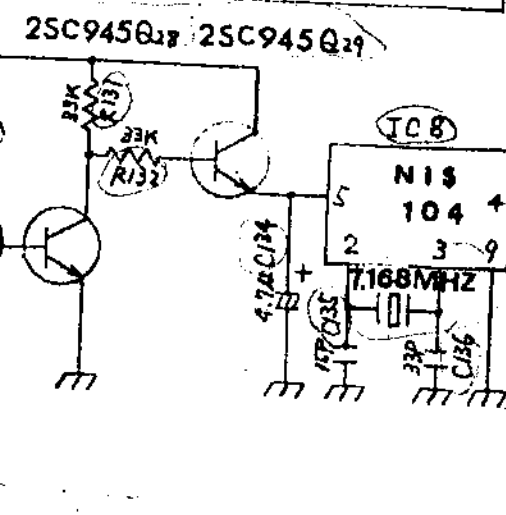 2SC945Q28 2SC945Q29
33K
R131
33K
R132
IC8
NIS
104
5
4
2
3
9
7.168MHZ
4.7µ
C134
+
C135
33P
C136